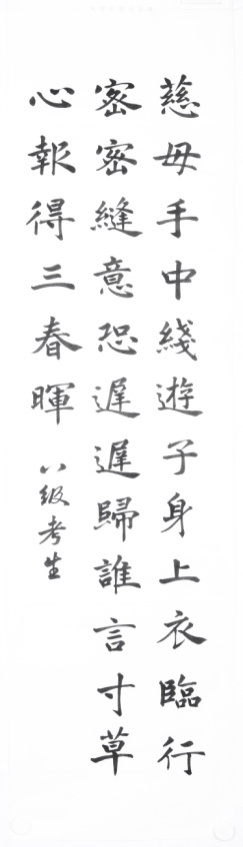 慈母手中綫遊子身上衣臨行
密密縫意恐遲遲歸誰言寸草
心報得三春暉
八级考生